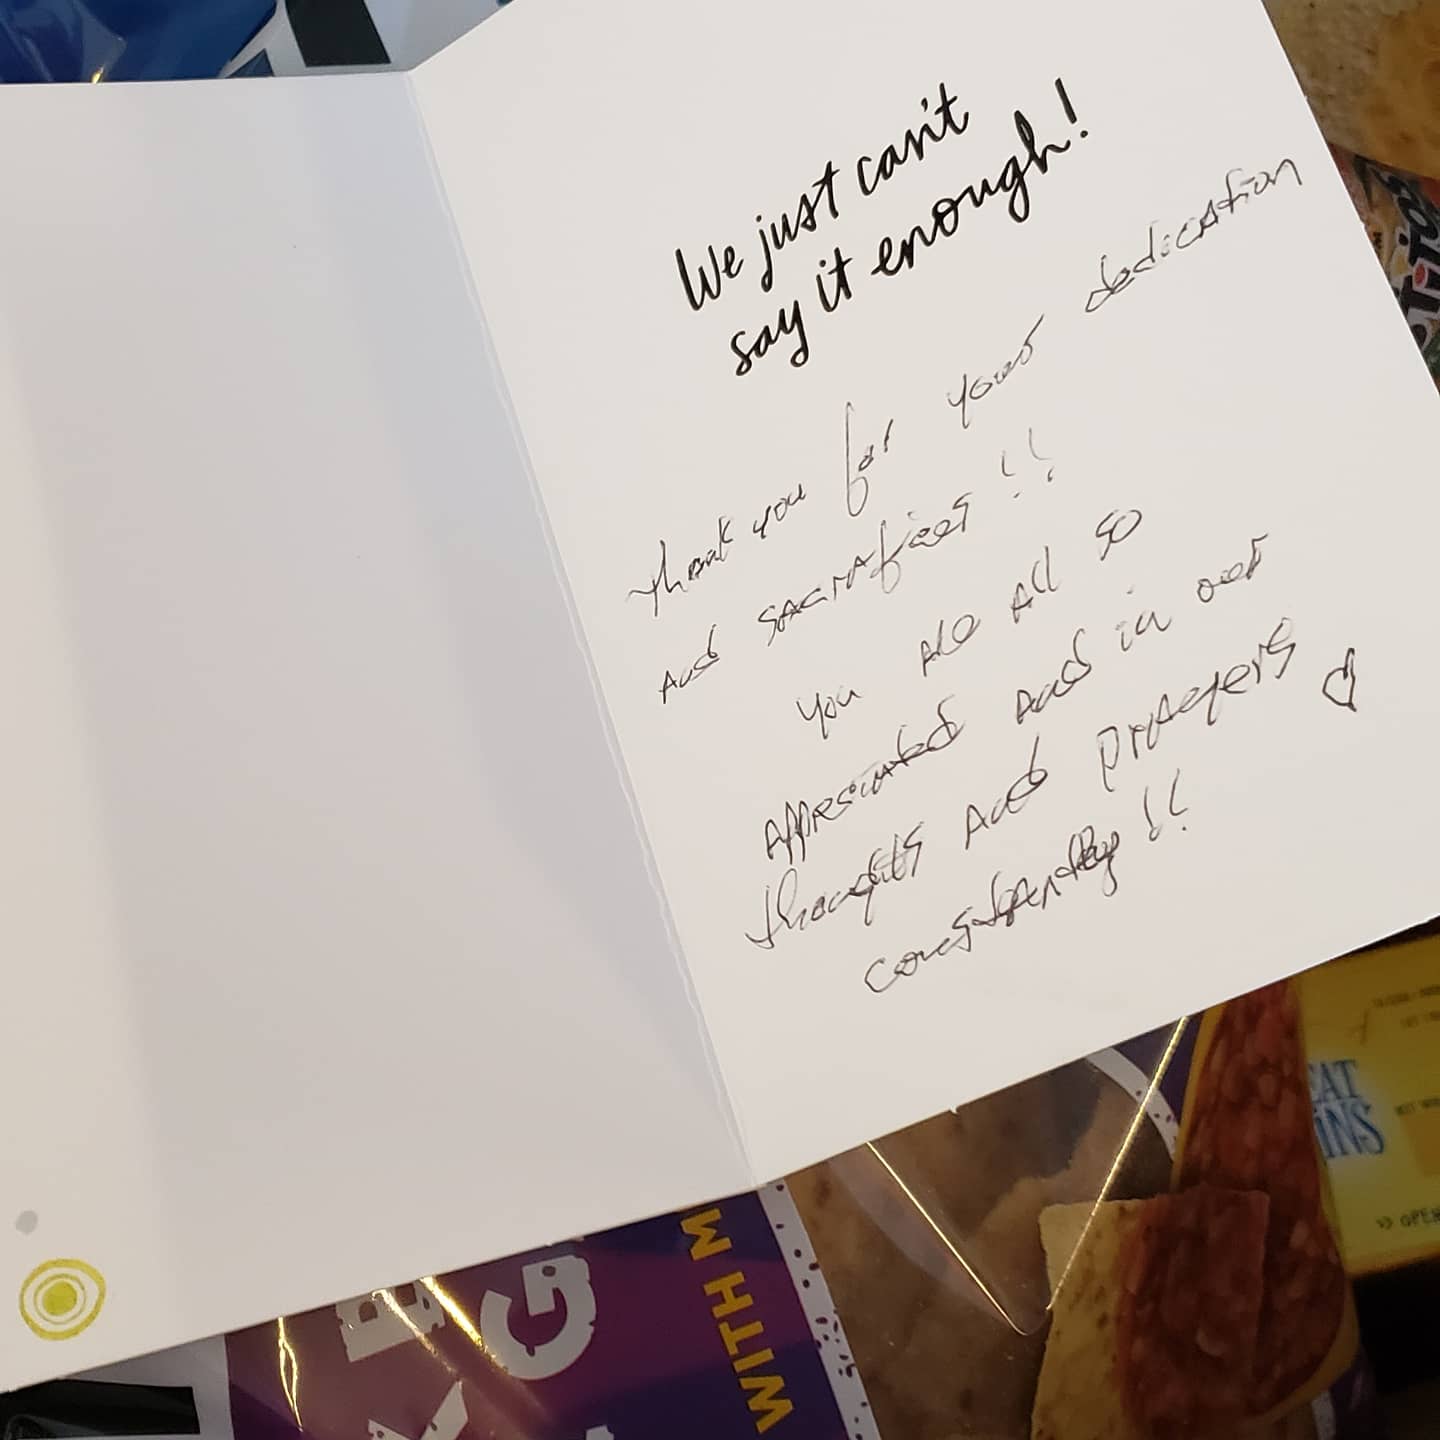 We just can't
say it enough!
Thank you for your dedication
and sacrafices!!
You are all so
appresciated and in our
thoughts and prayers
constantly!!
WITH M
>> OPE